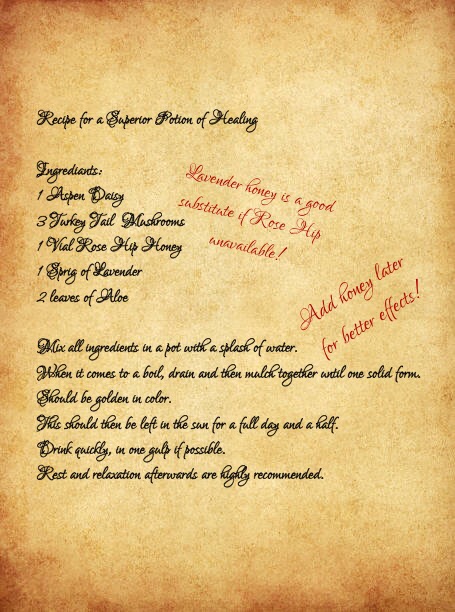 Recipe for a Superior Potion of Healing
Ingrediants:
1 Aspen Daisy
3 Turkey Tail Mushrooms
1 Vial Rose Hip Honey
1 Sprig of Lavender
2 leaves of Aloe
Lavender honey is a good
substitute if Rose Hip
unavailable!
Add honey later
for better effects!
Mix all ingredients in a pot with a splash of water.
When it comes to a boil, drain and then mulch together until one solid form.
Should be golden in color.
This should then be left in the sun for a full day and a half.
Drink quickly, in one gulp if possible.
Rest and relaxation afterwards are highly recommended.